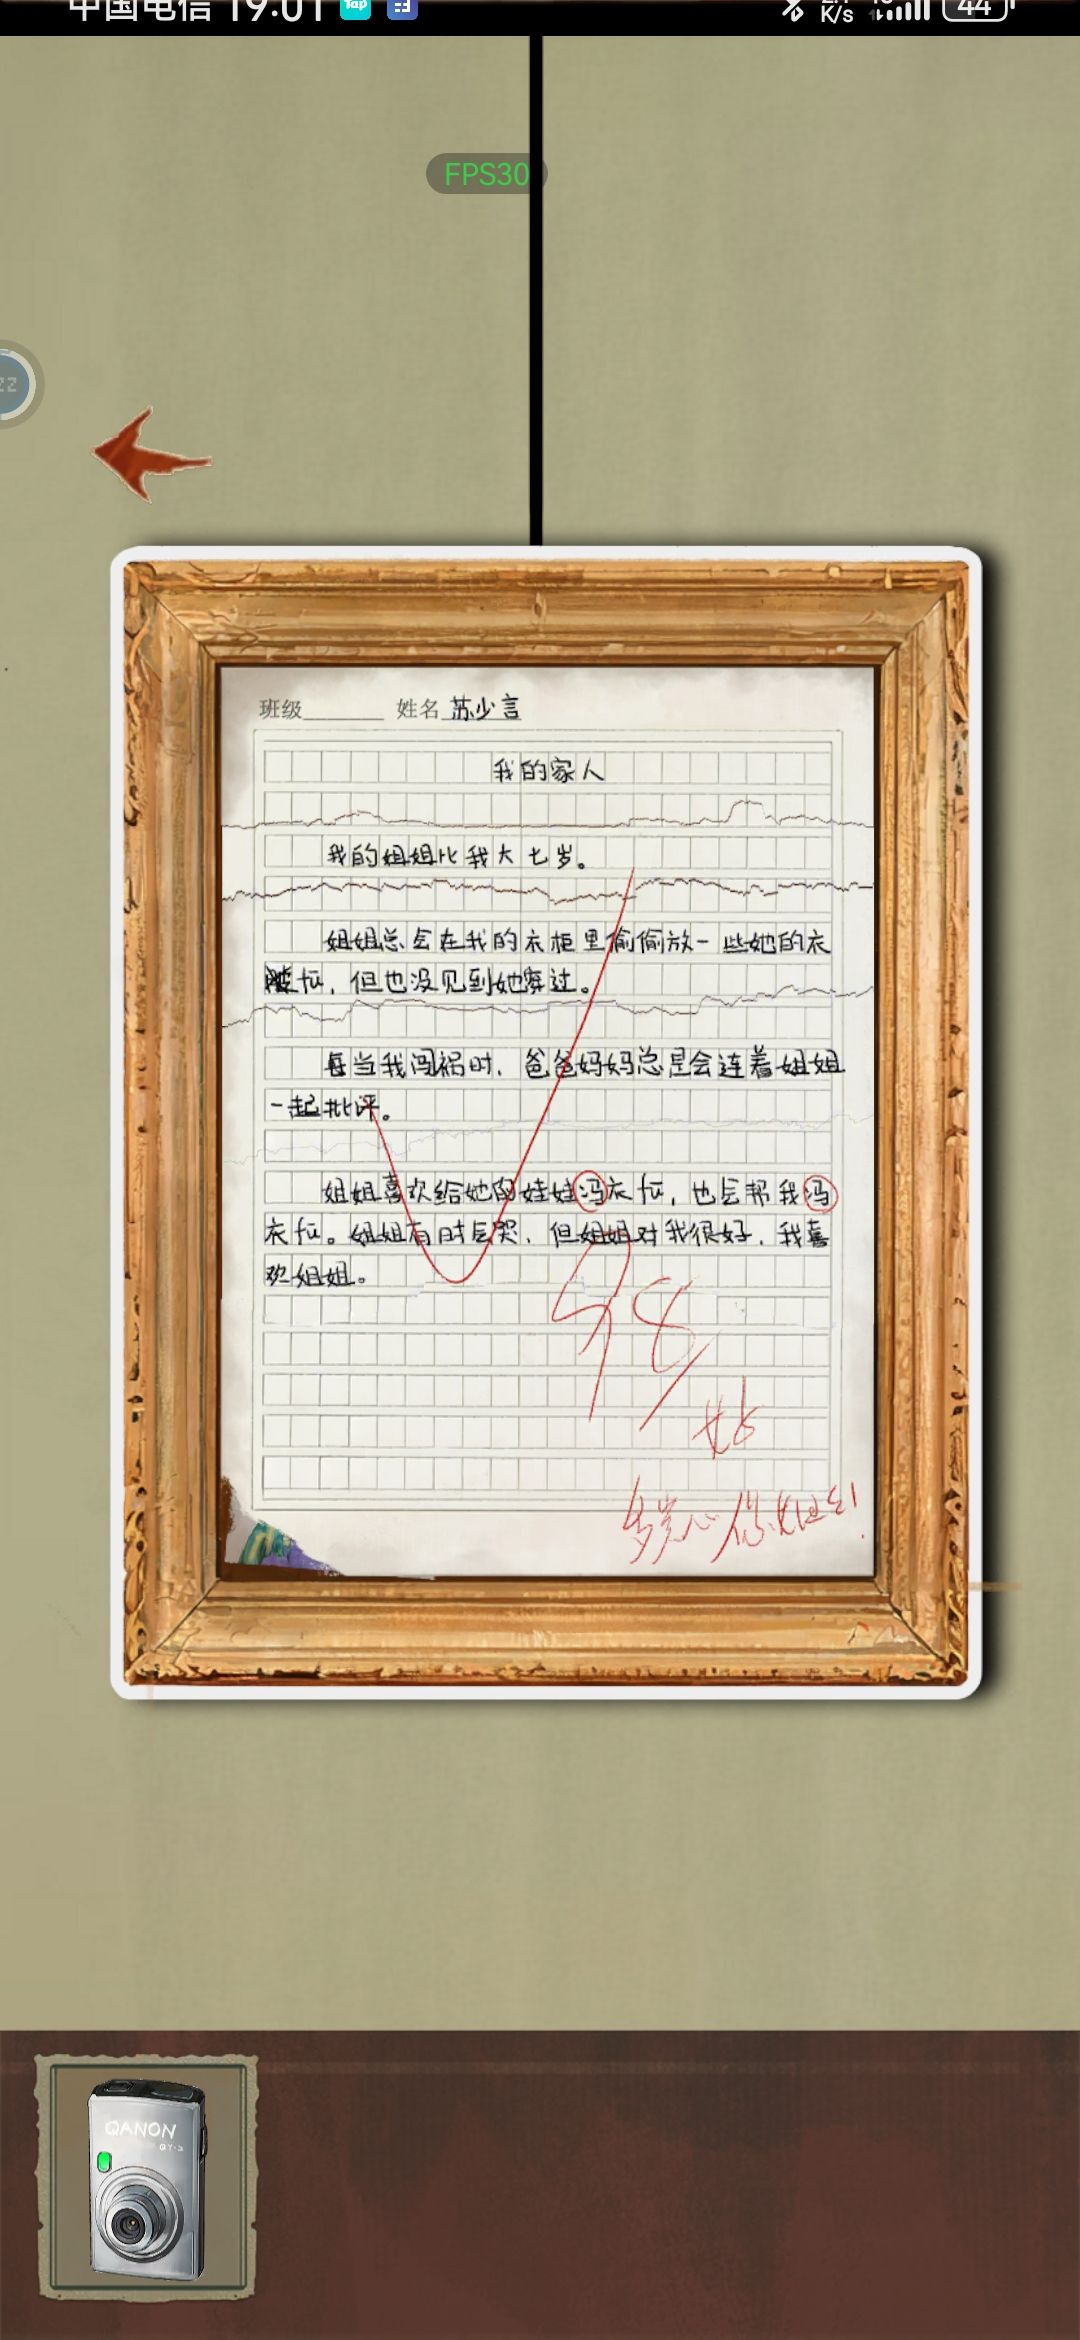 中国电信 19:01
K/s
44
FPS30
22
班级 姓名 苏少言
我的家人
我的姐姐比我大七岁。
姐姐总会在我的衣柜里偷偷放一些她的衣
服,但也没见到她穿过。
每当我闯祸时,爸爸妈妈总是会连着姐姐
一起批评。
姐姐喜欢给她的娃娃冯衣服,也会帮我冯
衣服。姐姐有时会哭,但姐姐对我很好,我喜
欢姐姐。
98
好
QANON